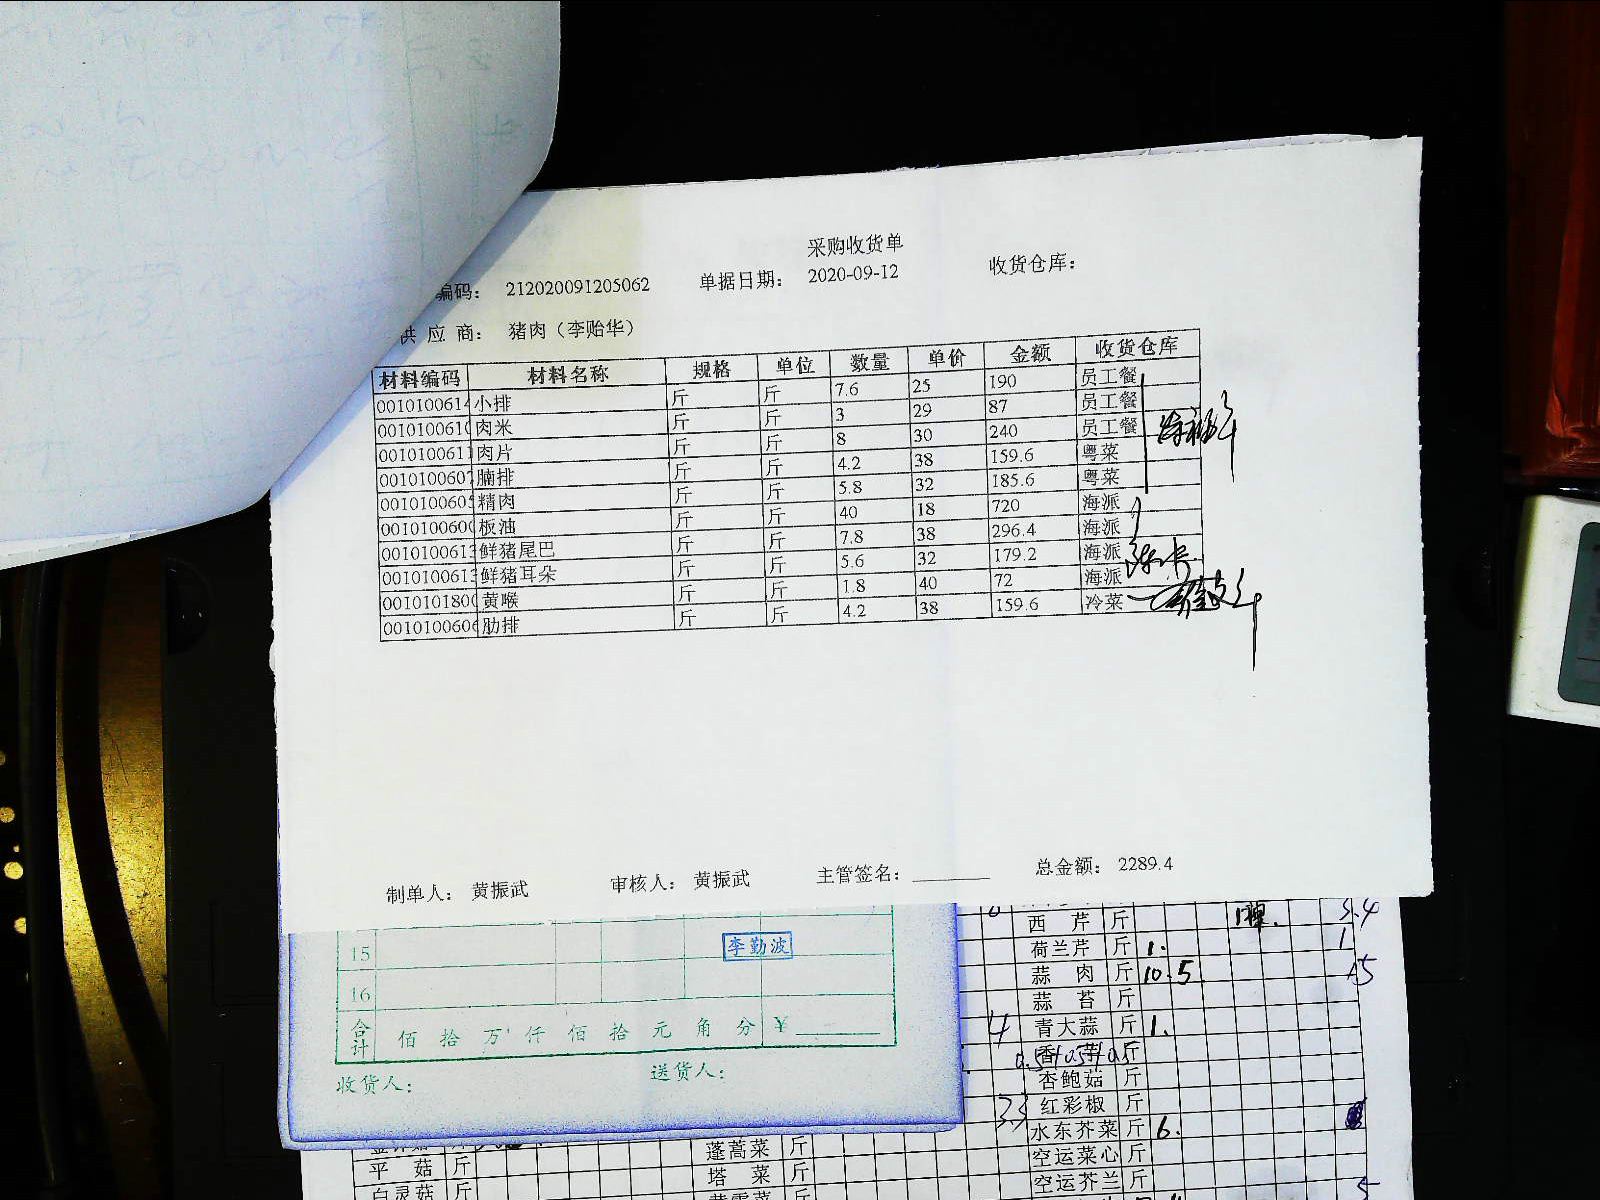 采购收货单
编码： 212020091205062 单据日期： 2020-09-12 收货仓库：
供 应 商： 猪肉（李贻华）
材料编码 材料名称 规格 单位 数量 单价 金额 收货仓库
001010061 小排 斤 斤 7.6 25 190 员工餐
001010061 肉米 斤 斤 3 29 87 员工餐
001010061 肉片 斤 斤 8 30 240 员工餐
001010060 腩排 斤 斤 4.2 38 159.6 粤菜
001010060 精肉 斤 斤 5.8 32 185.6 粤菜
001010060 板油 斤 斤 40 18 720 海派
001010061 鲜猪尾巴 斤 斤 7.8 38 296.4 海派
001010061 鲜猪耳朵 斤 斤 5.6 32 179.2 海派
001010180 黄喉 斤 斤 1.8 40 72 海派
001010060 肋排 斤 斤 4.2 38 159.6 冷菜
制单人： 黄振武 审核人： 黄振武 主管签名： 总金额： 2289.4
15 李勤波
16
合计 佰 拾 万 仟 佰 拾 元 角 分 ￥
收货人： 送货人：
西 芹 斤 3.4
荷兰芹 斤 1. 1
蒜 肉 斤 10.5 15
蒜 苔 斤
4 青大蒜 斤 1.
斤
杏鲍菇 斤
33 红彩椒 斤
水东芥菜 斤 6.
空运菜心 斤
空运芥兰 斤 5
蓬蒿菜 斤
塔 菜 斤
平 菇 斤
白灵菇 斤